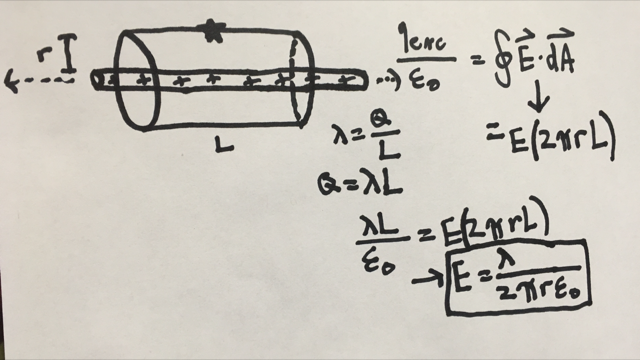 r
+ + + + + + +
L
qenc/ε₀ = ∮E⃗·dA⃗
= E(2πrL)
λ = Q/L
Q = λL
λL/ε₀ = E(2πrL)
→ E = λ/2πrε₀